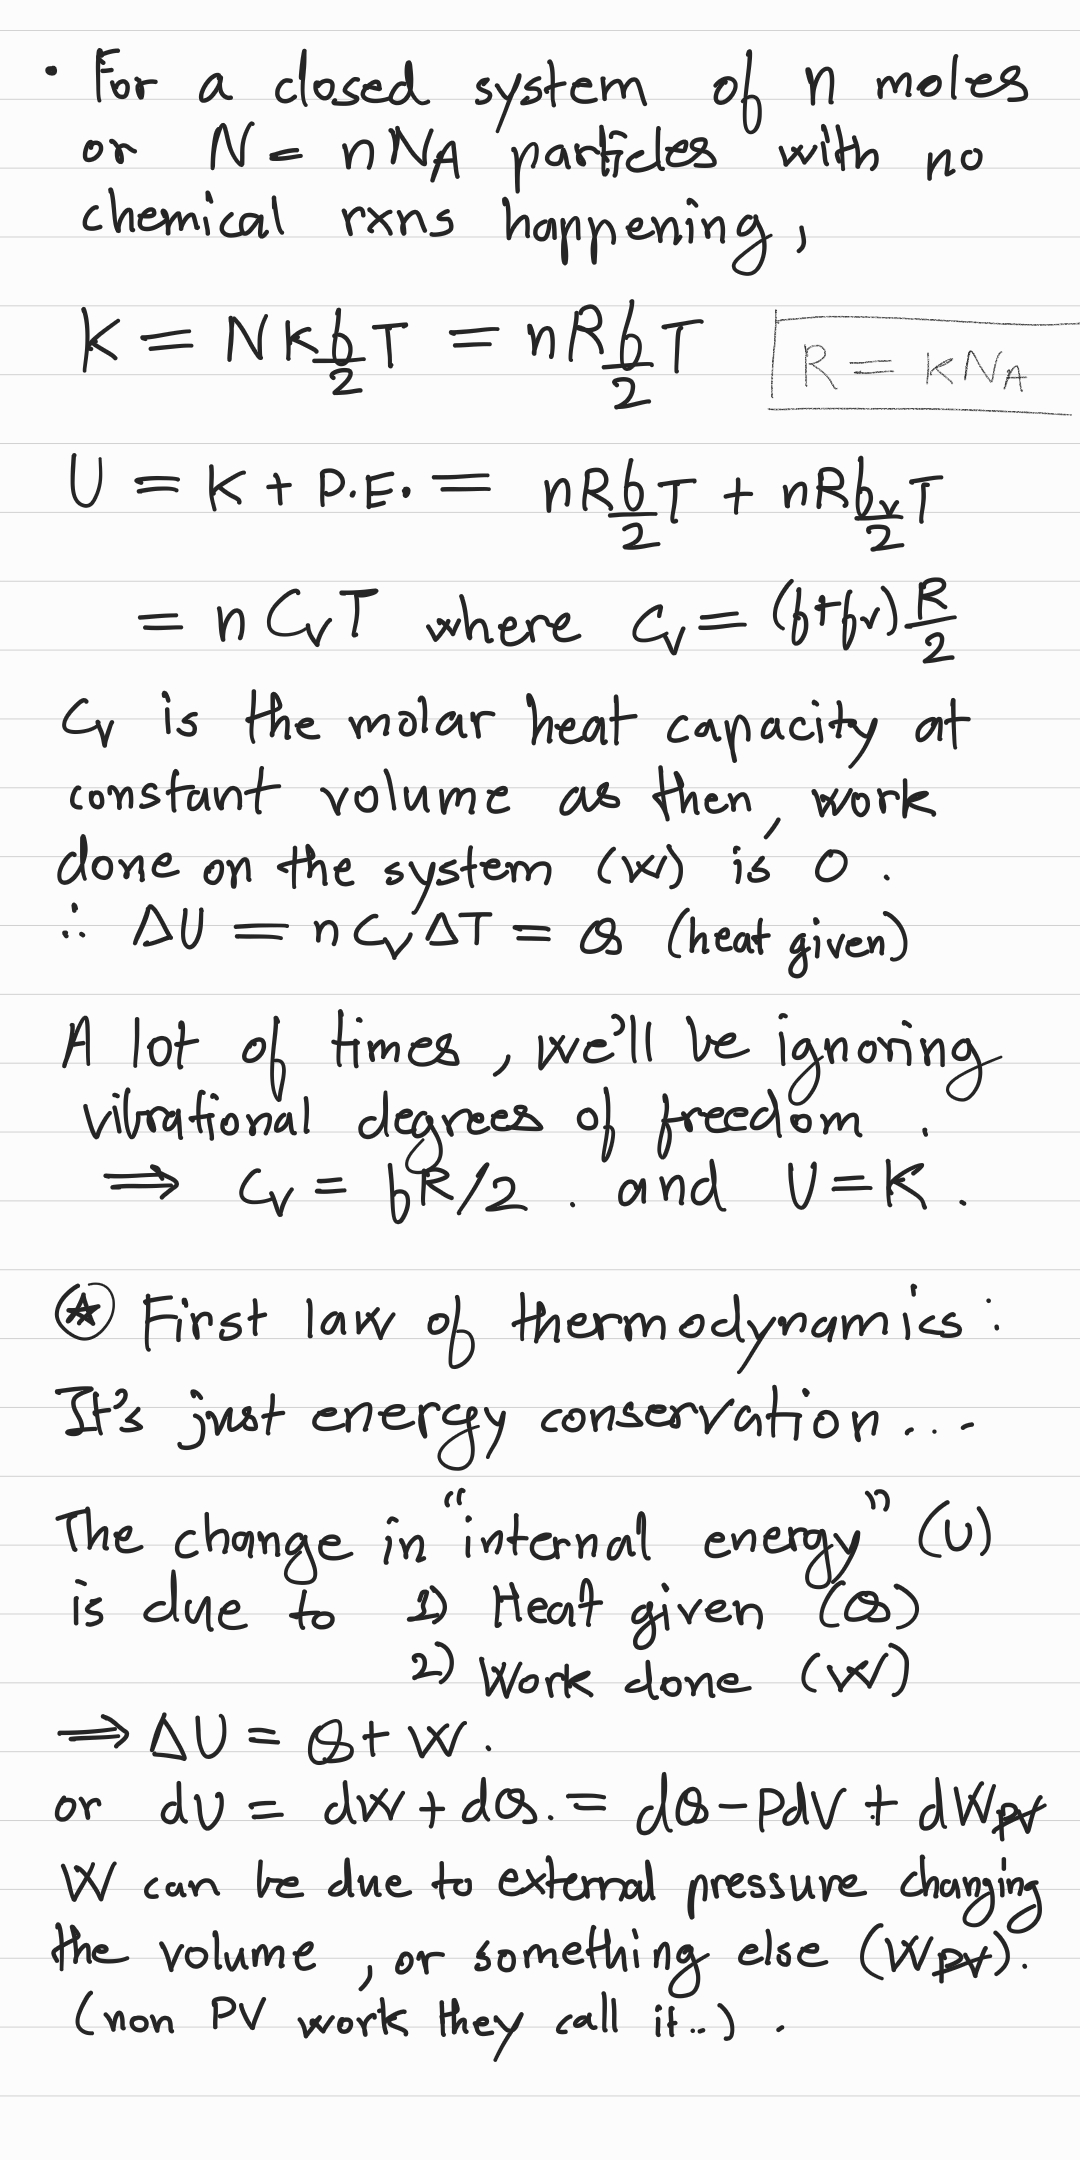 · For a closed system of n moles
or N = nN_A particles with no
chemical rxns happening,
K = N k f/2 T = nR f/2 T
R = kN_A
U = K + P.E. = nR f/2 T + nR f_v/2 T
= n C_v T where C_v = (f+f_v) R/2
C_v is the molar heat capacity at
constant volume as then, work
done on the system (W) is 0.
∴ ΔU = n C_v ΔT = Q (heat given)
A lot of times, we'll be ignoring
vibrational degrees of freedom.
⟹ C_v = fR/2. and U = K.
⍟ First law of thermodynamics:
It's just energy conservation...
The change in "internal energy" (U)
is due to 1) Heat given (Q)
2) Work done (W)
⟹ ΔU = Q + W.
or dU = dW + dQ. = dQ - PdV + dW_P̶V̶
W can be due to external pressure changing
the volume, or something else (W_P̶V̶).
(non PV work they call it..).